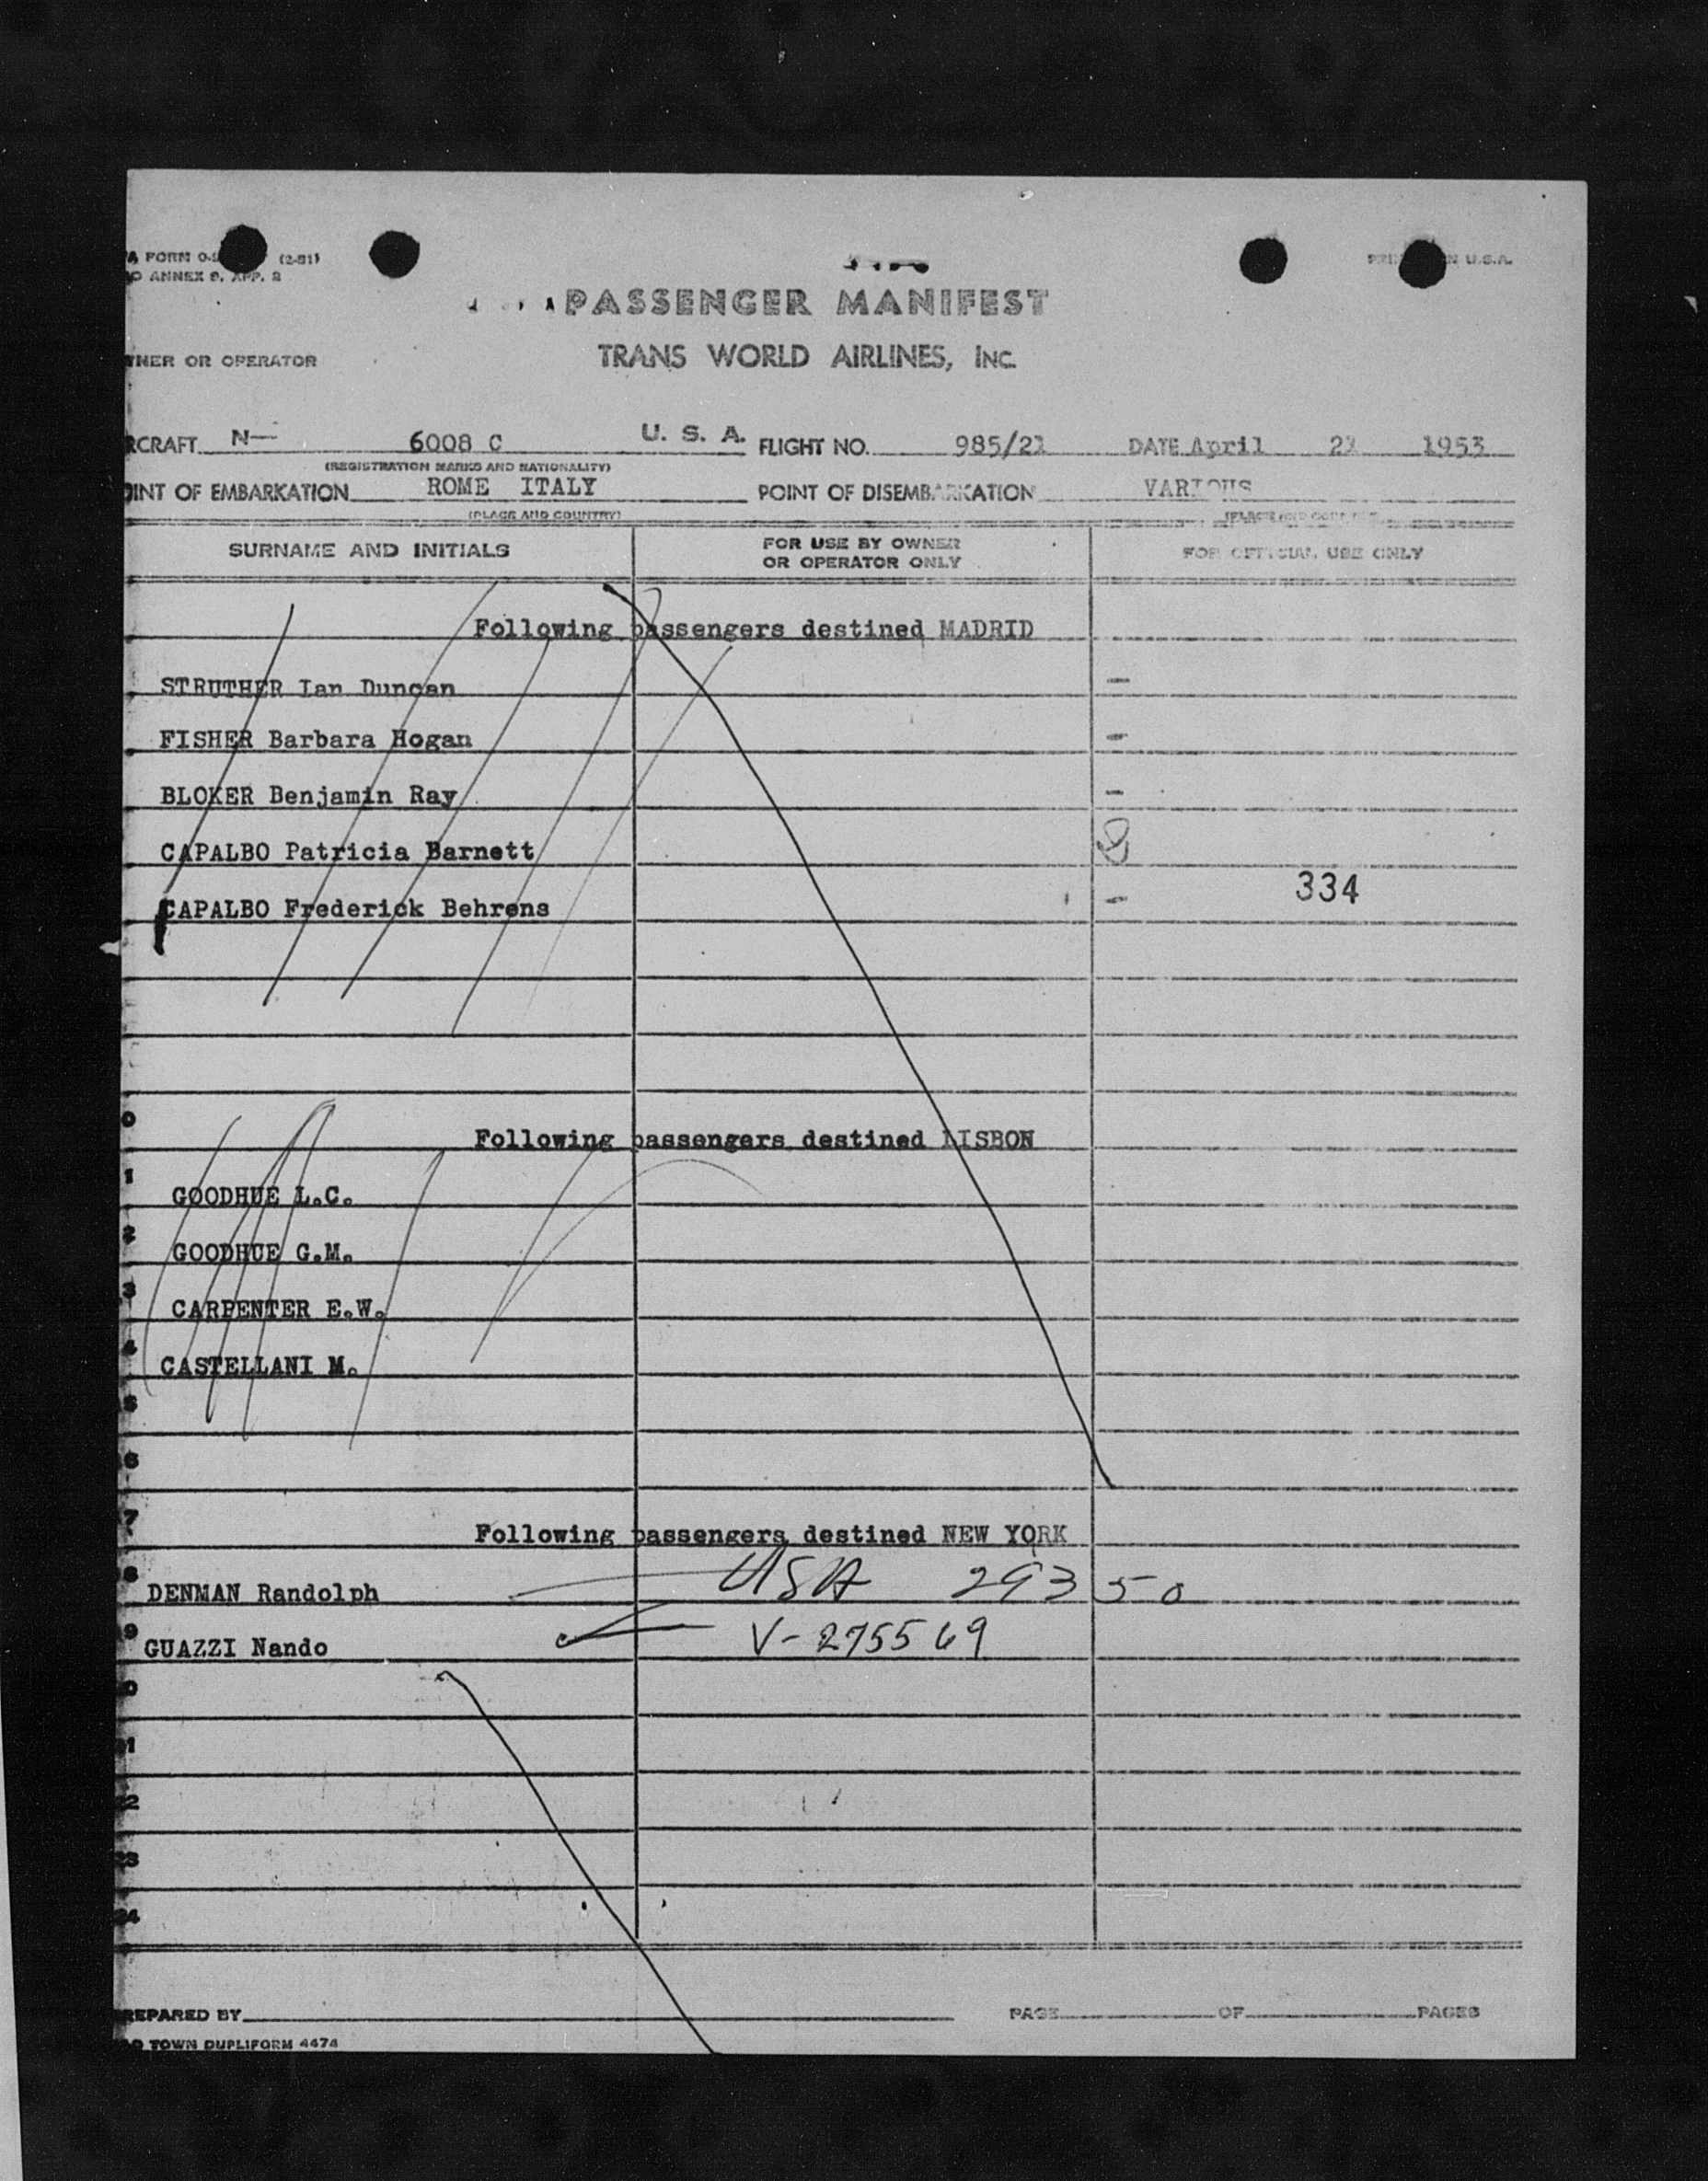 A FORM 0- (2-51)
O ANNEX 9, APP. 2
IN U.S.A.
PASSENGER MANIFEST
NER OR OPERATOR TRANS WORLD AIRLINES, INC.
RCRAFT N— 6008 C U. S. A. FLIGHT NO. 985/21 DATE April 21 1953
(REGISTRATION MARKS AND NATIONALITY)
OINT OF EMBARKATION ROME ITALY POINT OF DISEMBARKATION VARIOUS
(PLACE AND COUNTRY) (PLACE AND COUNTRY)
SURNAME AND INITIALS FOR USE BY OWNER OR OPERATOR ONLY FOR OFFICIAL USE ONLY
Following passengers destined MADRID
STRUTHER Ian Duncan -
FISHER Barbara Hogan -
BLOKER Benjamin Ray -
CAPALBO Patricia Barnett
334
CAPALBO Frederick Behrens -
0 Following passengers destined LISBON
1 GOODHUE L.C.
2 GOODHUE G.M.
3 CARPENTER E.W.
4 CASTELLANI M.
5
6
7 Following passengers destined NEW YORK
8 DENMAN Randolph USA 29350
9 GUAZZI Nando V-2755 69
0
21
22
23
24
REPARED BY PAGE OF PAGES
TOWN DUPLIFORM 4474